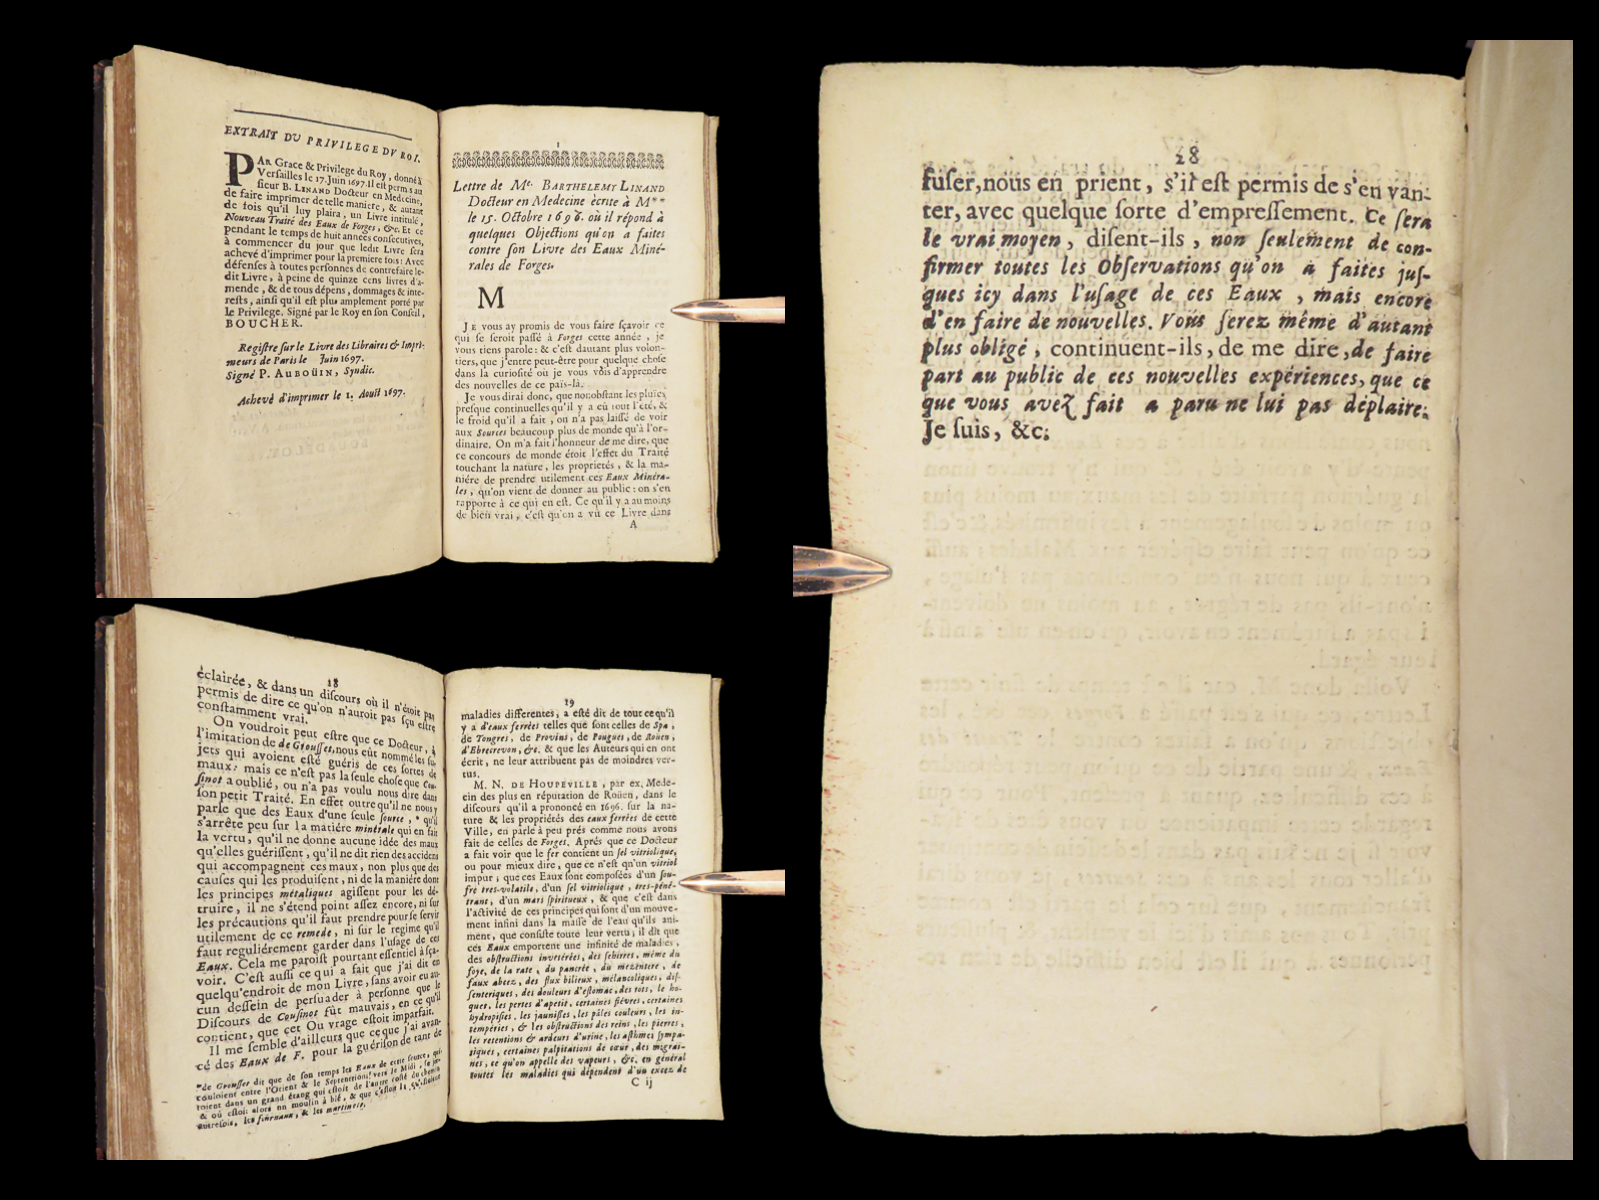 EXTRAIT DU PRIVILEGE DU ROI.
PAR Grace & Privilege du Roy, donné à
Versailles le 17. Juin 1697. Il est permis au
sieur B. LINAND Docteur en Medecine,
de faire imprimer de telle maniere, & autant
de fois qu'il luy plaira, un Livre intitulé,
Nouveau Traité des Eaux de Forges, &c. Et ce
pendant le temps de huit années consecutives,
à commencer du jour que ledit Livre sera
achevé d'imprimer pour la premiere fois: Avec
défenses à toutes personnes de contrefaire le-
dit Livre, à peine de quinze cens livres d'a-
mende, & de tous dépens, dommages & inte-
rests, ainsi qu'il est plus amplement porté par
le Privilege. Signé par le Roy en son Conseil,
BOUCHER.
Registré sur le Livre des Libraires & Impri-
meurs de Paris le Juin 1697.
Signé P. AUBOÜIN, Syndic.
Achevé d'imprimer le 1. Aoust 1697.
1
Lettre de Me. BARTHELEMY LINAND
Docteur en Medecine écrite à M**
le 15. Octobre 1696. où il répond à
quelques Objections qu'on a faites
contre son Livre des Eaux Miné-
rales de Forges.
M
JE vous ay promis de vous faire sçavoir ce
qui se seroit passé à Forges cette année, je
vous tiens parole: & c'est dautant plus volon-
tiers, que j'entre peut-être pour quelque chose
dans la curiosité où je vous vois d'apprendre
des nouvelles de ce païs-là.
Je vous dirai donc, que nonobstant les pluïes
presque continuelles qu'il y a eu tout l'été, &
le froid qu'il a fait, on n'a pas laissé de voir
aux Sources beaucoup plus de monde qu'à l'or-
dinaire. On m'a fait l'honneur de me dire, que
ce concours de monde étoit l'effet du Traité
touchant la nature, les proprietés, & la ma-
niére de prendre utilement ces Eaux Minéra-
les, qu'on vient de donner au public: on s'en
rapporte à ce qui en est. Ce qu'il y a au moins
de bien vrai, c'est qu'on a vû ce Livre dans
A
18
éclairée, & dans un discours où il n'étoit pas
permis de dire ce qu'on n'auroit pas sçu estre
constamment vrai.
On voudroit peut estre que ce Docteur, à
l'imitation de de Grousset, nous eût nommé les su-
jets qui avoient esté guéris de ces sortes de
maux: mais ce n'est pas la seule chose que Cou-
sinot a oublié, ou n'a pas voulu nous dire dans
son petit Traité. En effet outre qu'il ne nous y
parle que des Eaux d'une seule source, * qu'il
s'arrête peu sur la matiére minérale qui en fait
la vertu, qu'il ne donne aucune idée des maux
qu'elles guérissent, qu'il ne dit rien des accidens
qui accompagnent ces maux, non plus que des
causes qui les produisent, ni de la maniére dont
les principes métaliques agissent pour les dé-
truire, il ne s'étend point assez encore, ni sur
les précautions qu'il faut prendre pour se servir
utilement de ce remede, ni sur le regime qu'il
faut reguliérement garder dans l'usage de ces
Eaux. Cela me paroist pourtant essentiel à sça-
voir. C'est aussi ce qui a fait que j'ai dit en
quelqu'endroit de mon Livre, sans avoir eu au-
cun dessein de persuader à personne que le
Discours de Cousinot fût mauvais, en ce qu'il
contient, que cet Ou vrage estoit imparfait.
Il me semble d'ailleurs que ce que j'ai avan-
cé des Eaux de F. pour la guérison de tant de
*de Grousset dit que de son temps les Eaux de cette source, qui
couloient entre l'Orient & le Septentrion, vers le Midi, se jet-
toient dans un grand étang qui estoit de l'autre costé du chemin
& où estoit alors un moulin à blé, & que c'estoit là, qu'estoient
autrefois, les fourneaux, & les martinets.
19
maladies differentes, a esté dit de tout ce qu'il
y a d'eaux ferrées telles que sont celles de Spa,
de Tongres, de Provins, de Pougues, de Roüen,
d'Ebrecrevon, &c. & que les Auteurs qui en ont
écrit, ne leur attribuent pas de moindres ver-
tus.
M. N. DE HOUPEVILLE, par ex. Mede-
cin des plus en réputation de Roüen, dans le
discours qu'il a prononcé en 1696. sur la na-
ture & les proprietés des eaux ferrées de cette
Ville, en parle à peu prés comme nous avons
fait de celles de Forges. Aprés que ce Docteur
a fait voir que le fer contient un sel vitriolique,
ou pour mieux dire, que ce n'est qu'un vitriol
impur; que ces Eaux sont composées d'un sou-
fre tres-volatile, d'un sel vitriolique, tres-péné-
trant, d'un mars spiritueux, & que c'est dans
l'activité de ces principes qui sont d'un mouve-
ment infini dans la masse de l'eau qu'ils ani-
ment, que consiste toute leur vertu; il dit que
ces Eaux emportent une infinité de maladies,
des obstructions inveterées, des schirres, même du
foye, de la rate, du pancrée, du mezentere, de
faux abcez, des flux bilieux, mélancoliques, dis-
senteriques, des douleurs d'estomac, des rots, le ho-
quet, les pertes d'apetit, certaines fiévres, certaines
hydropisies, les jaunisses, les pâles couleurs, les in-
tempéries, & les obstructions des reins, les pierres,
les retentions & ardeurs d'urine, les asthmes sympa-
tiques, certaines palpitations de cœur, des migrai-
nes, ce qu'on appelle des vapeurs, &c. en général
toutes les maladies qui dépendent d'un excez de
C ij
28
fuser, nous en prient, s'il est permis de s'en van-
ter, avec quelque sorte d'empressement. Ce sera
le vrai moyen, disent-ils, non seulement de con-
firmer toutes les Observations qu'on a faites jus-
ques icy dans l'usage de ces Eaux, mais encore
d'en faire de nouvelles. Vous serez même d'autant
plus obligé, continuent-ils, de me dire, de faire
part au public de ces nouvelles expériences, que ce
que vous avez fait a paru ne lui pas déplaire.
Je suis, &c.